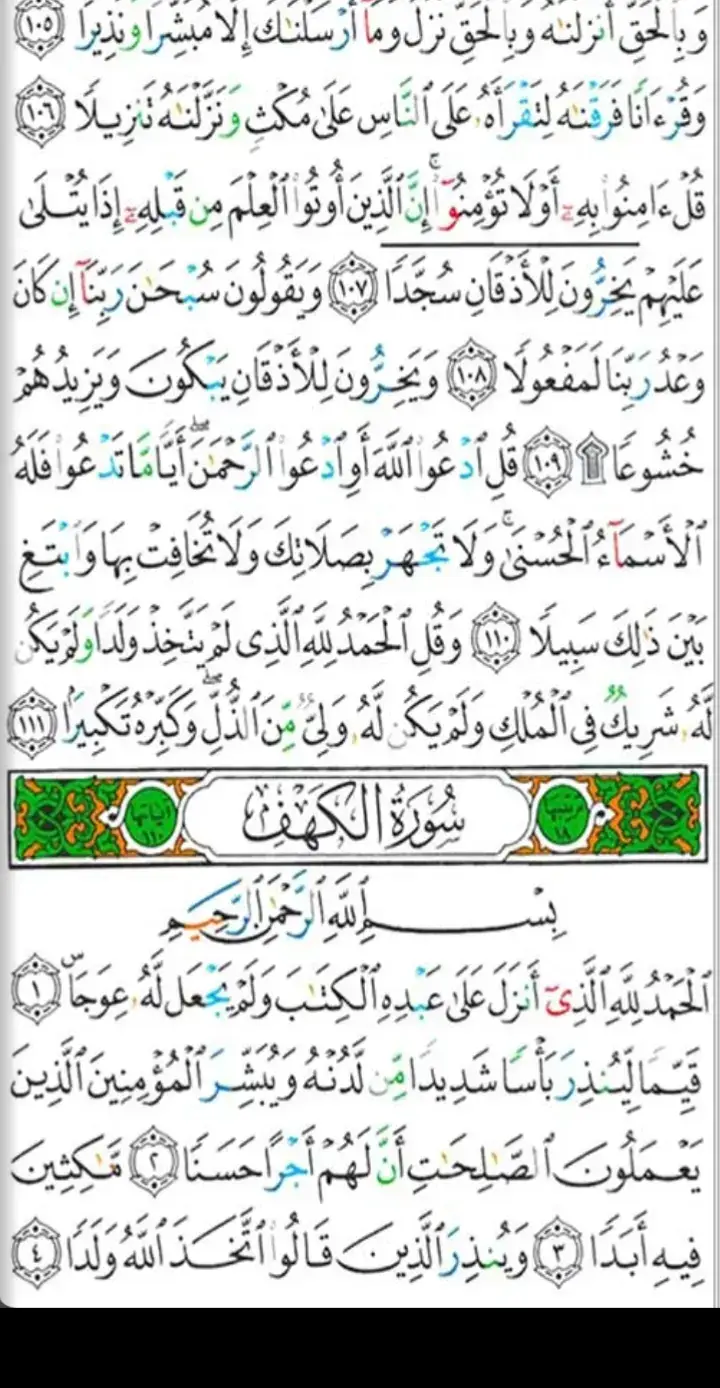 وَبِٱلْحَقِّ أَنزَلْنَٰهُ وَبِٱلْحَقِّ نَزَلَ وَمَآ أَرْسَلْنَٰكَ إِلَّا مُبَشِّرًا وَنَذِيرًا ١٠٥
وَقُرْءَانًا فَرَقْنَٰهُ لِتَقْرَأَهُۥ عَلَى ٱلنَّاسِ عَلَىٰ مُكْثٍ وَنَزَّلْنَٰهُ تَنزِيلًا ١٠٦
قُلْ ءَامِنُوا۟ بِهِۦٓ أَوْ لَا تُؤْمِنُوٓا۟ ۚ إِنَّ ٱلَّذِينَ أُوتُوا۟ ٱلْعِلْمَ مِن قَبْلِهِۦٓ إِذَا يُتْلَىٰ
عَلَيْهِمْ يَخِرُّونَ لِلْأَذْقَانِ سُجَّدًا ١٠٧ وَيَقُولُونَ سُبْحَٰنَ رَبِّنَآ إِن كَانَ
وَعْدُ رَبِّنَا لَمَفْعُولًا ١٠٨ وَيَخِرُّونَ لِلْأَذْقَانِ يَبْكُونَ وَيَزِيدُهُمْ
خُشُوعًا ۩ ١٠٩ قُلِ ٱدْعُوا۟ ٱللَّهَ أَوِ ٱدْعُوا۟ ٱلرَّحْمَٰنَ ۖ أَيًّا مَّا تَدْعُوا۟ فَلَهُ
ٱلْأَسْمَآءُ ٱلْحُسْنَىٰ ۚ وَلَا تَجْهَرْ بِصَلَاتِكَ وَلَا تُخَافِتْ بِهَا وَٱبْتَغِ
بَيْنَ ذَٰلِكَ سَبِيلًا ١١٠ وَقُلِ ٱلْحَمْدُ لِلَّهِ ٱلَّذِى لَمْ يَتَّخِذْ وَلَدًا وَلَمْ يَكُن
لَّهُۥ شَرِيكٌ فِى ٱلْمُلْكِ وَلَمْ يَكُن لَّهُۥ وَلِىٌّ مِّنَ ٱلذُّلِّ ۖ وَكَبِّرْهُ تَكْبِيرًۢا ١١١
ترتيبها ١٨ سُورَةُ الكَهْفِ آياتها ١١٠
بِسْمِ ٱللَّهِ ٱلرَّحْمَٰنِ ٱلرَّحِيمِ
ٱلْحَمْدُ لِلَّهِ ٱلَّذِىٓ أَنزَلَ عَلَىٰ عَبْدِهِ ٱلْكِتَٰبَ وَلَمْ يَجْعَل لَّهُۥ عِوَجَا ۜ ١
قَيِّمًا لِّيُنذِرَ بَأْسًا شَدِيدًا مِّن لَّدُنْهُ وَيُبَشِّرَ ٱلْمُؤْمِنِينَ ٱلَّذِينَ
يَعْمَلُونَ ٱلصَّٰلِحَٰتِ أَنَّ لَهُمْ أَجْرًا حَسَنًا ٢ مَّٰكِثِينَ
فِيهِ أَبَدًا ٣ وَيُنذِرَ ٱلَّذِينَ قَالُوا۟ ٱتَّخَذَ ٱللَّهُ وَلَدًا ٤